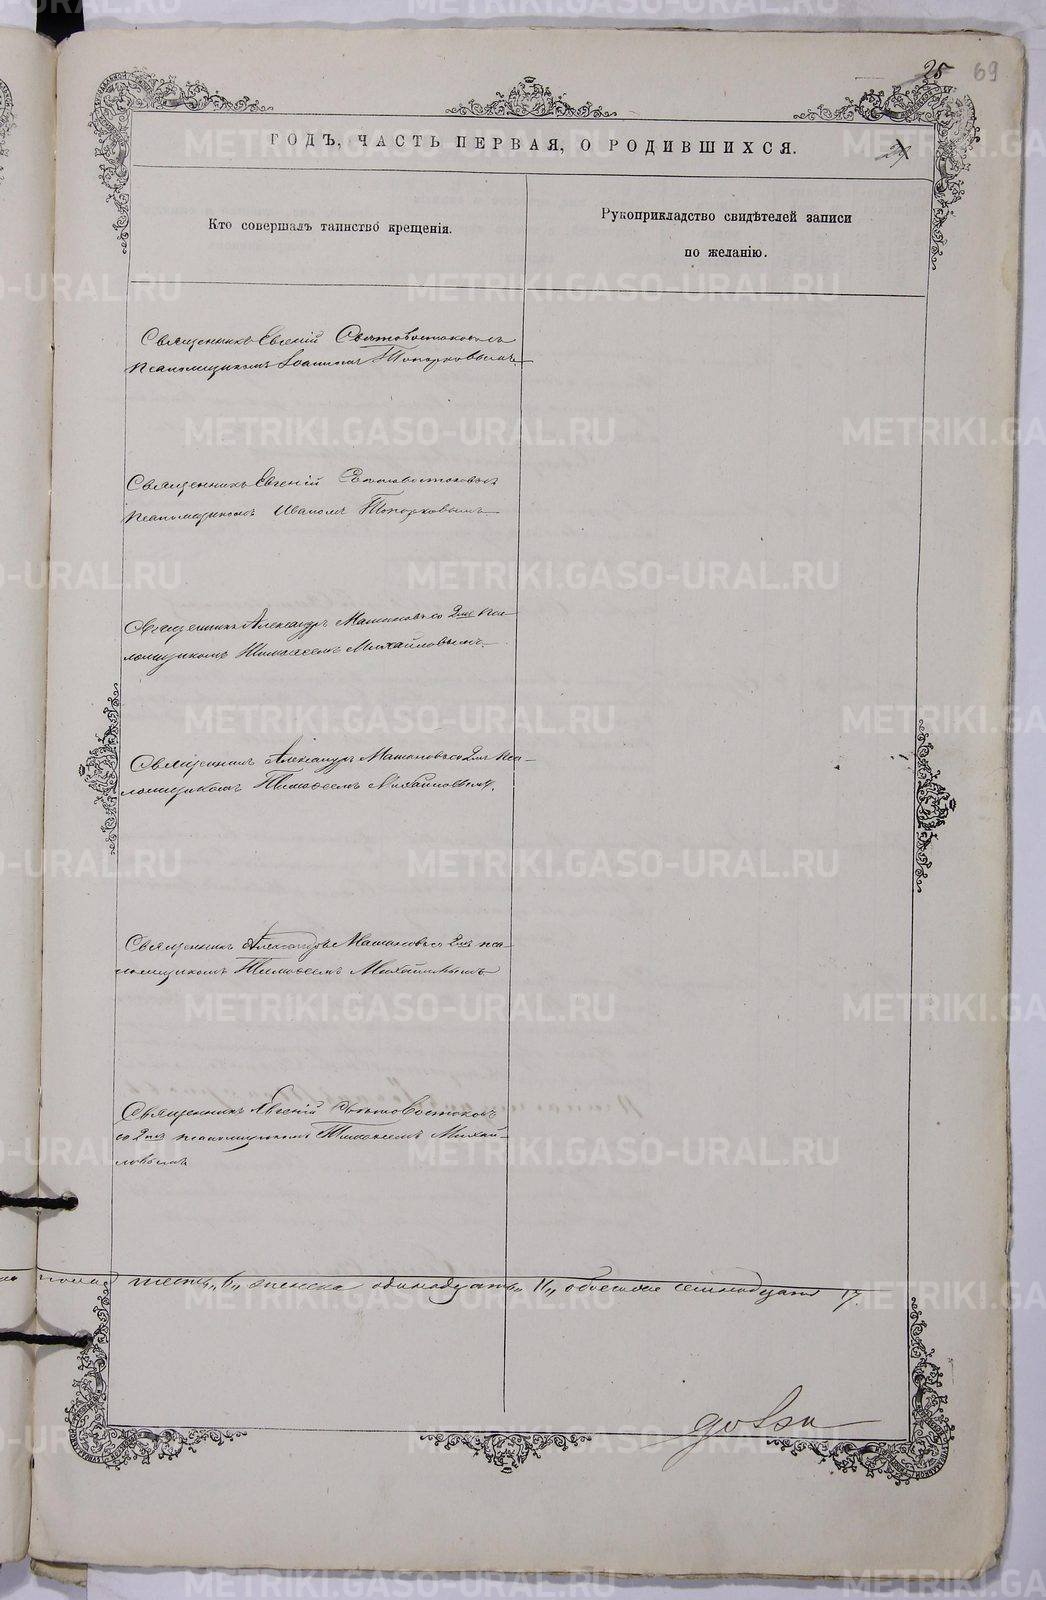 25 69
29
ГОДЪ, ЧАСТЬ ПЕРВАЯ, О РОДИВШИХСЯ.
Кто совершалъ таинство крещенія.
Рукоприкладство свидѣтелей записи
по желанію.
Священникъ Евгеній Свѣтовостоковъ съ
псаломщикомъ Іоанномъ Топорковымъ.
Священникъ Евгеній Свѣтовостоковъ съ
псаломщикомъ Иваномъ Топорковымъ
Священникъ Александръ со 2мъ пса-
ломщикомъ Тимоѳеемъ Михайловымъ.
Священникъ Александръ со 2мъ пса-
ломщикомъ Тимоѳеемъ Михайловымъ.
Священникъ Александръ со 2мъ пса-
ломщикомъ Тимоѳеемъ Михайловымъ
Священникъ Евгеній Свѣтовостоковъ
со 2мъ псаломщикомъ Тимоѳеемъ Михай-
ловымъ
пола шесть „6„ женска одинадцать „11„ обоего семнадцать 17.
METRIKI.GASO-URAL.RU